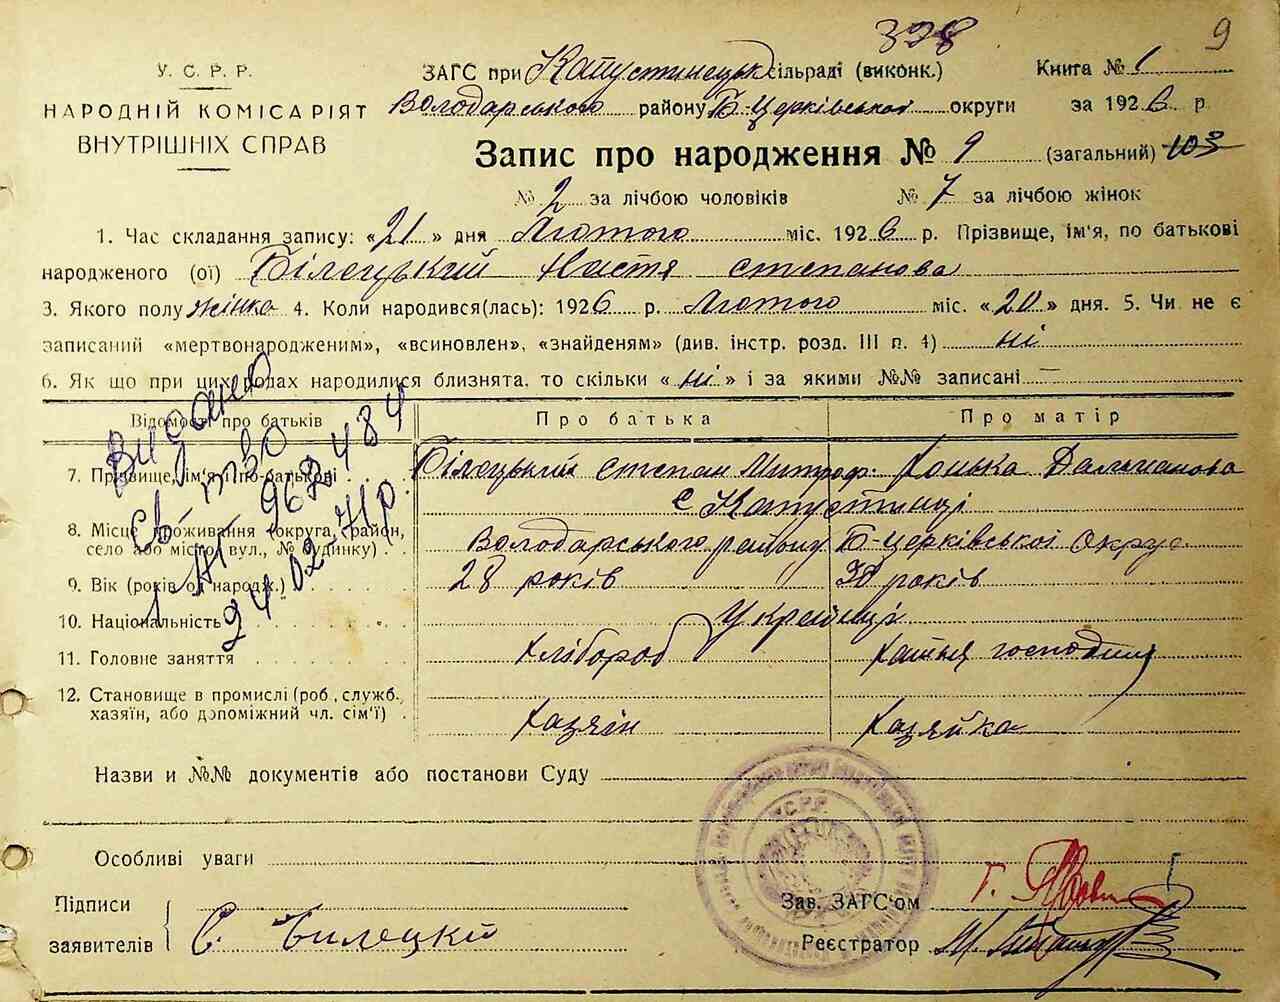 398
9
У. С. Р. Р.
НАРОДНІЙ КОМІСАРІЯТ
ВНУТРІШНІХ СПРАВ
ЗАГС при Капустинецьк сільраді (виконк.) Книга № 1
Володарського району Б-Церківської округи за 1926 р
Запис про народження № 9 (загальний) 103
№ 2 за лічбою чоловіків № 7 за лічбою жінок
1. Час складання запису: «21» дня Лютого міс. 1926 р. Прізвище, ім'я, по батькові
народженого (ої) Білецький Настя степанова
3. Якого полу жінка 4. Коли народився(лась): 1926 р. Лютого міс. «20» дня. 5. Чи не є
записаний «мертвонародженим», «всиновлен», «знайденям» (див. інстр. розд. III п. 4) ні
6. Як що при цих родах народилися близнята, то скільки «ні» і за якими №№ записані —
Відомості про батьків Про батька Про матір
7. Прізвище, ім'я і по-батькові Білецький степан Митроф. Хонька
с Капустинці
8. Місце проживання (округа, район, Володарського району Б-Церківської Округ
село або місто, вул., № будинку)
9. Вік (років од народж.) 28 років 30 років
10. Національність Українці
11. Головне заняття Хлібороб Хатня господиня
12. Становище в промислі (роб., служб., хазяїн, або допоміжний чл. сім'ї) Хазяїн Хазяйка
Видано
св-тво
967484
24.02.71р.
Назви и №№ документів або постанови Суду
Особливі уваги
У.С.Р.Р.
Підписи
заявителів С. Билецки
Зав. ЗАГС'ом Г.
Реєстратор М.